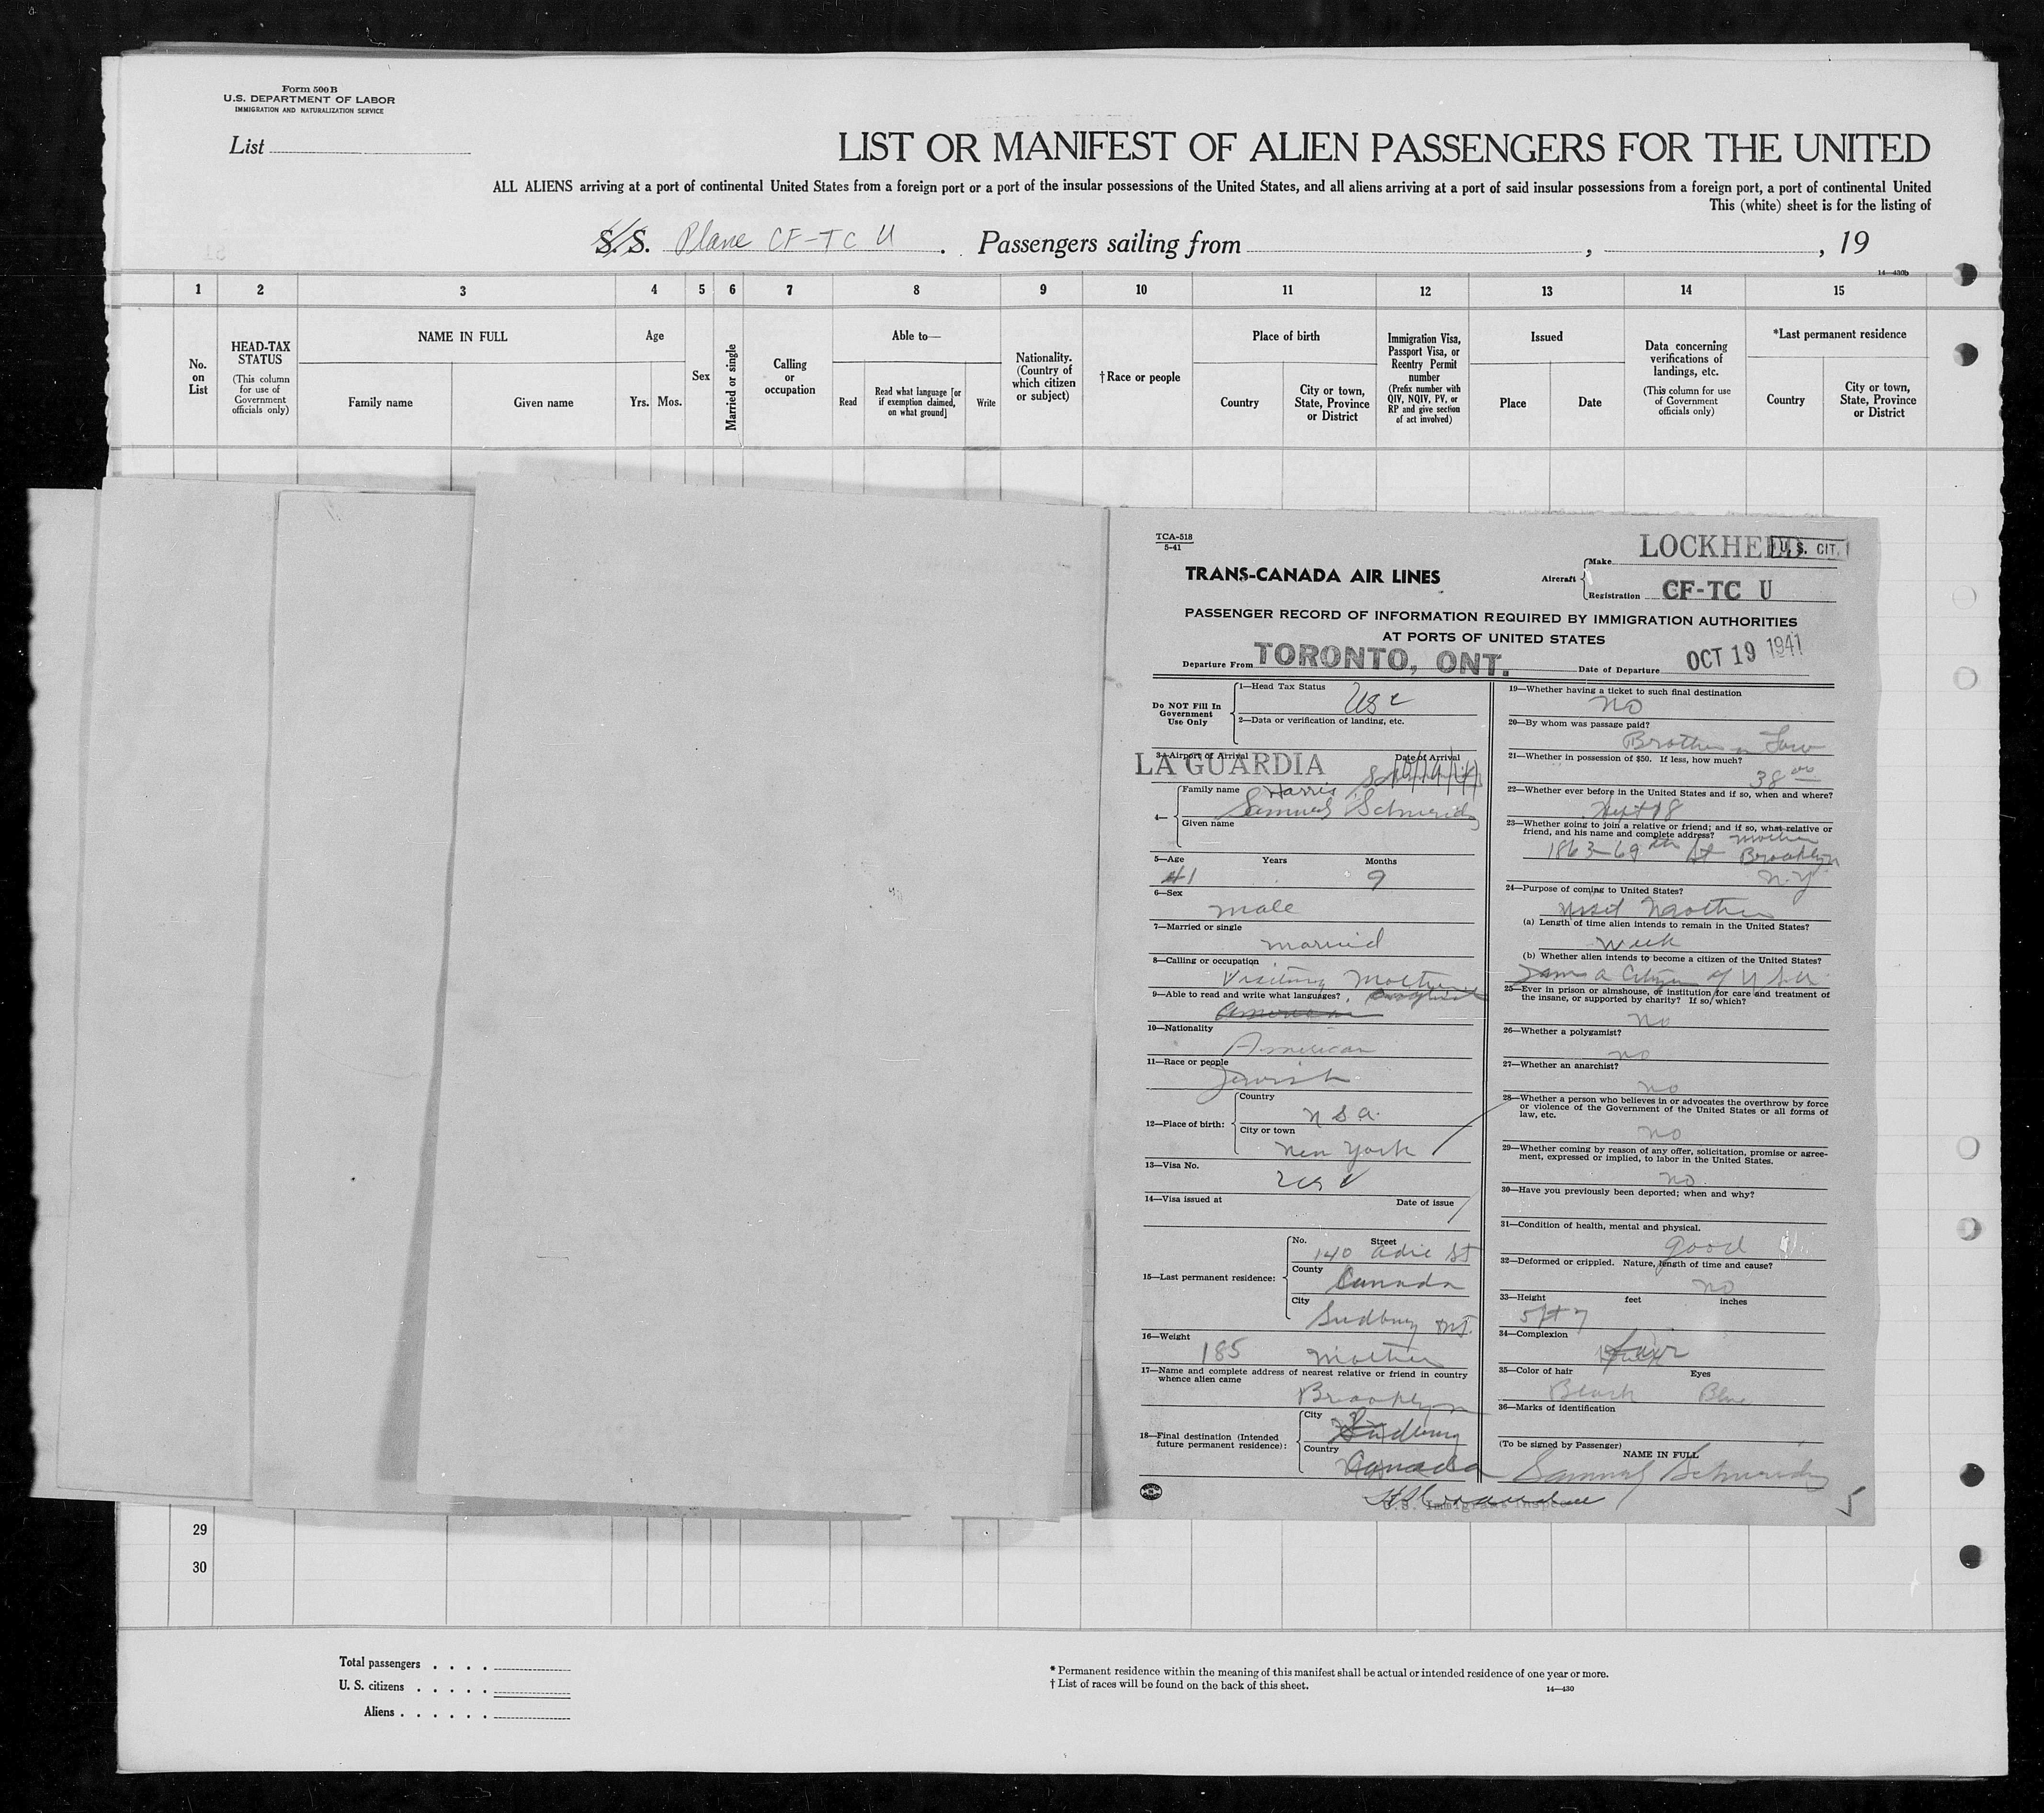 Form 500 B
U.S. DEPARTMENT OF LABOR
IMMIGRATION AND NATURALIZATION SERVICE
List
LIST OR MANIFEST OF ALIEN PASSENGERS FOR THE UNITED
ALL ALIENS arriving at a port of continental United States from a foreign port or a port of the insular possessions of the United States, and all aliens arriving at a port of said insular possessions from a foreign port, a port of continental United
This (white) sheet is for the listing of
S.S. Plane CF-TC U . Passengers sailing from , , 19
14—430b
1 2 3 4 5 6 7 8 9 10 11 12 13 14 15
No. on List
HEAD-TAX STATUS
(This column for use of Government officials only)
NAME IN FULL
Family name
Given name
Age
Yrs. Mos.
Sex
Married or single
Calling or occupation
Able to—
Read
Read what language [or if exemption claimed, on what ground]
Write
Nationality. (Country of which citizen or subject)
†Race or people
Place of birth
Country
City or town, State, Province or District
Immigration Visa, Passport Visa, or Reentry Permit number
(Prefix number with QIV, NQIV, PV, or RP and give section of act involved)
Issued
Place
Date
Data concerning verifications of landings, etc.
(This column for use of Government officials only)
*Last permanent residence
Country
City or town, State, Province or District
TCA-518
5-41
TRANS-CANADA AIR LINES
Aircraft
Make LOCKHEED
U. S. CIT.
Registration CF-TC U
PASSENGER RECORD OF INFORMATION REQUIRED BY IMMIGRATION AUTHORITIES
AT PORTS OF UNITED STATES
Departure From TORONTO, ONT. Date of Departure OCT 19 1941
Do NOT Fill In Government Use Only
1—Head Tax Status USC
2—Data or verification of landing, etc.
3—Airport of Arrival Date of Arrival
LA GUARDIA 10/19/41
4—
Family name Harris
Samuel Schneider
Given name
5—Age Years Months
41 9
6—Sex
male
7—Married or single
married
8—Calling or occupation
Visiting Mother
9—Able to read and write what languages? English
American
10—Nationality
American
11—Race or people
Jewish
12—Place of birth:
Country
U S a.
City or town
New York
13—Visa No.
USC
14—Visa issued at Date of issue
15—Last permanent residence:
No. Street
140 Adie St
County
Canada
City
Sudbury Ont.
16—Weight
185 Mother
17—Name and complete address of nearest relative or friend in country whence alien came
Brooklyn
18—Final destination (Intended future permanent residence):
City
Sudbury
Country
Canada
19—Whether having a ticket to such final destination
No
20—By whom was passage paid?
Brother in Law
21—Whether in possession of $50. If less, how much?
38 00
22—Whether ever before in the United States and if so, when and where?
23—Whether going to join a relative or friend; and if so, what relative or friend, and his name and complete address? mother
1863-69 th St Brooklyn
N.Y.
24—Purpose of coming to United States?
Visit Mother
(a) Length of time alien intends to remain in the United States?
week
(b) Whether alien intends to become a citizen of the United States?
I am a Citizen of U.S.A.
25—Ever in prison or almshouse, or institution for care and treatment of the insane, or supported by charity? If so, which?
No
26—Whether a polygamist?
no
27—Whether an anarchist?
no
28—Whether a person who believes in or advocates the overthrow by force or violence of the Government of the United States or all forms of law, etc.
no
29—Whether coming by reason of any offer, solicitation, promise or agreement, expressed or implied, to labor in the United States.
no
30—Have you previously been deported; when and why?
31—Condition of health, mental and physical.
good
32—Deformed or crippled. Nature, length of time and cause?
no
33—Height feet inches
5ft 7
34—Complexion
fair
35—Color of hair Eyes
Black Blue
36—Marks of identification
(To be signed by Passenger) NAME IN FULL
Samuel Schneider
U.S. Immigrant Inspector
5
29
30
Total passengers . . . .
U. S. citizens . . . . .
Aliens . . . . . .
* Permanent residence within the meaning of this manifest shall be actual or intended residence of one year or more.
† List of races will be found on the back of this sheet.
14—430